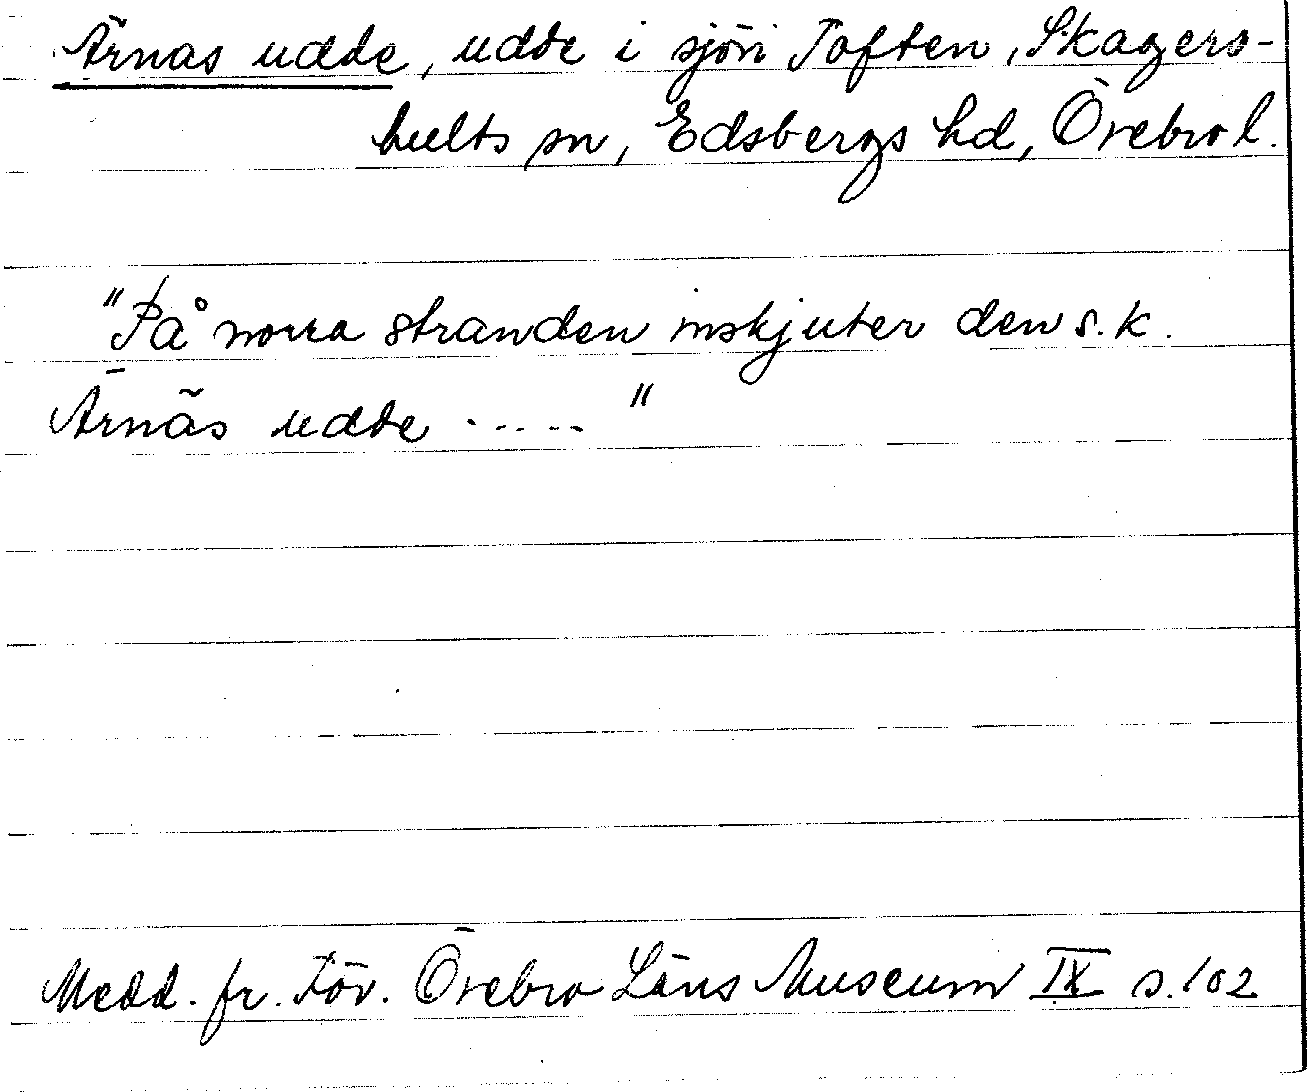 Ärnäs udde, udde i sjön Toften, Skagers-
hults sn, Edsbergs hd, Örebro l.
"På norra stranden inskjuter den s.k.
Ärnäs udde ....."
Medd. fr. För. Örebro Läns Museum IX s. 102